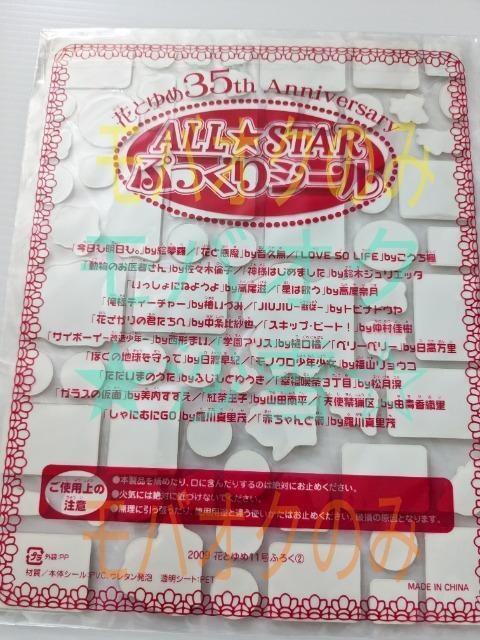 花とゆめ35th Anniversary
ALL★STAR
ぷっくりシール
「今日も明日も。」by絵夢羅/「花と悪魔」by音久無/「LOVE SO LIFE」byこうち楓
「動物のお医者さん」by佐々木倫子/「神様はじめました」by鈴木ジュリエッタ
「いっしょにねようよ」by高尾滋/「星は歌う」by高屋奈月
「俺様ティーチャー」by椿いづみ/「JIUJIU by」トビナトウヤ
「花ざかりの君たちへ」by中条比紗也/「スキップ・ビート!」by仲村佳樹
「サイボーイby西形まい/「学園アリス」by樋口橘/「ベリーベリー」by日高万里
「ぼくの地球を守って」by日渡早紀/「モノクロ少年少女」by福山リョウコ
「ただいまのうた」byふじもとゆうき/「幸福喫茶3丁目」by松月滉
「ガラスの仮面」by美内すずえ/「紅茶王子」by山田南平/「天使禁猟区」by由貴香織里
「しゃにむにGO」by羅川真里茂/「赤ちゃんと僕」by羅川真里茂
ご使用上の注意
●本製品を舐めたり、口に含んだりするのは絶対にお止めください。
●火気には絶対に近づけないでください。
●無理に引っ張ったり、使用用途と違う使いかたはお止めください。破損の原因となります。
プラ 外袋:PP
2009 花とゆめ11号ふろく②
材質/本体シール:PVC、ウレタン発泡 透明シート:PET
MADE IN CHINA
モバオクのみ
モバオク
モバオクのみ